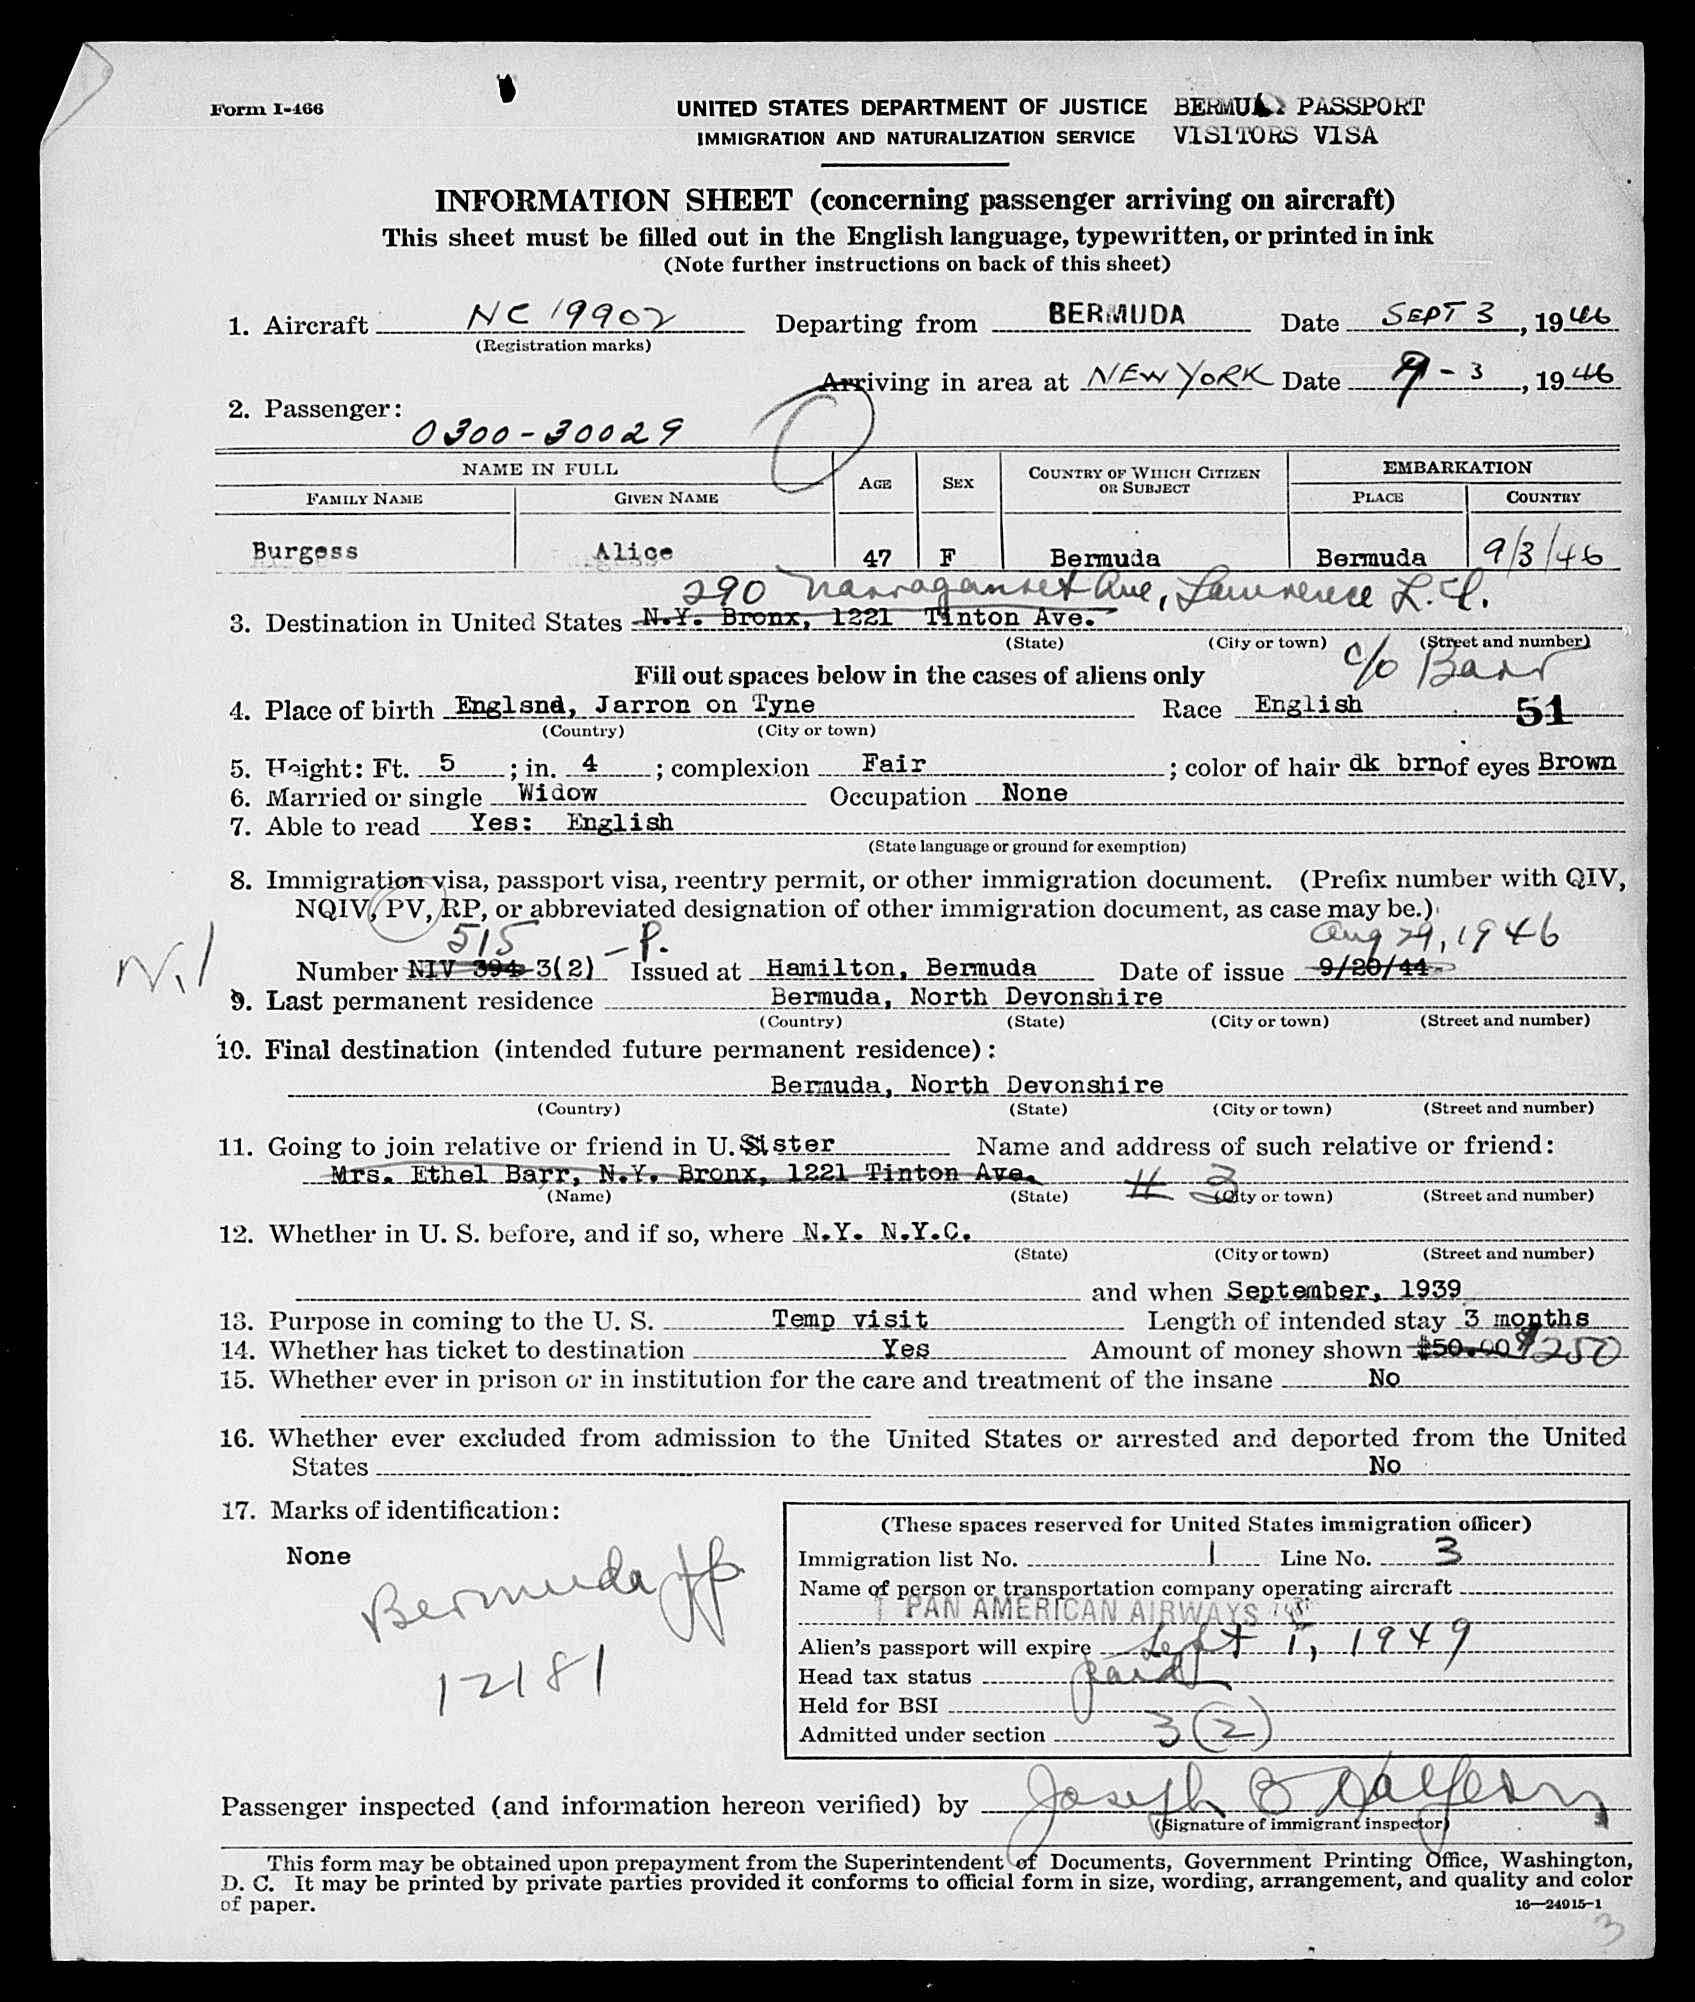 Form I-466
UNITED STATES DEPARTMENT OF JUSTICE BERMUDA PASSPORT
IMMIGRATION AND NATURALIZATION SERVICE VISITORS VISA
INFORMATION SHEET (concerning passenger arriving on aircraft)
This sheet must be filled out in the English language, typewritten, or printed in ink
(Note further instructions on back of this sheet)
1. Aircraft NC 19902 Departing from BERMUDA Date SEPT 3, 1946
(Registration marks)
Arriving in area at NEW YORK Date 9-3, 1946
2. Passenger:
0300-30029
NAME IN FULL AGE SEX COUNTRY OF WHICH CITIZEN OR SUBJECT EMBARKATION
FAMILY NAME GIVEN NAME PLACE COUNTRY
Burgess Alice 47 F Bermuda Bermuda 9/3/46
290 Narraganset Ave, Lawrence L.I.
3. Destination in United States N.Y. Bronx, 1221 Tinton Ave.
(State) (City or town) (Street and number)
c/o Barr
Fill out spaces below in the cases of aliens only
4. Place of birth Englsnd, Jarron on Tyne Race English 51
(Country) (City or town)
5. Height: Ft. 5; in. 4; complexion Fair; color of hair dk brn of eyes Brown
6. Married or single Widow Occupation None
7. Able to read Yes: English
(State language or ground for exemption)
8. Immigration visa, passport visa, reentry permit, or other immigration document. (Prefix number with QIV,
NQIV, PV, RP, or abbreviated designation of other immigration document, as case may be.)
515 -P. Aug 29, 1946
Number NIV 394 3(2) Issued at Hamilton, Bermuda Date of issue 9/20/44
9. Last permanent residence Bermuda, North Devonshire
(Country) (State) (City or town) (Street and number)
10. Final destination (intended future permanent residence):
Bermuda, North Devonshire
(Country) (State) (City or town) (Street and number)
11. Going to join relative or friend in U.S. Sister Name and address of such relative or friend:
Mrs. Ethel Barr, N.Y. Bronx, 1221 Tinton Ave. # 3
(Name) (State) (City or town) (Street and number)
12. Whether in U. S. before, and if so, where N.Y. N.Y.C.
(State) (City or town) (Street and number)
and when September, 1939
13. Purpose in coming to the U. S. Temp visit Length of intended stay 3 months
14. Whether has ticket to destination Yes Amount of money shown $50.00 $250
15. Whether ever in prison or in institution for the care and treatment of the insane No
16. Whether ever excluded from admission to the United States or arrested and deported from the United
States No
17. Marks of identification:
None
Bermuda
12181
(These spaces reserved for United States immigration officer)
Immigration list No. 1 Line No. 3
Name of person or transportation company operating aircraft
PAN AMERICAN AIRWAYS
Alien's passport will expire Sept 1, 1949
Head tax status paid
Held for BSI
Admitted under section 3(2)
Passenger inspected (and information hereon verified) by Joseph B
(Signature of immigrant inspector)
This form may be obtained upon prepayment from the Superintendent of Documents, Government Printing Office, Washington,
D. C. It may be printed by private parties provided it conforms to official form in size, wording, arrangement, and quality and color
of paper. 16—24915-1
3